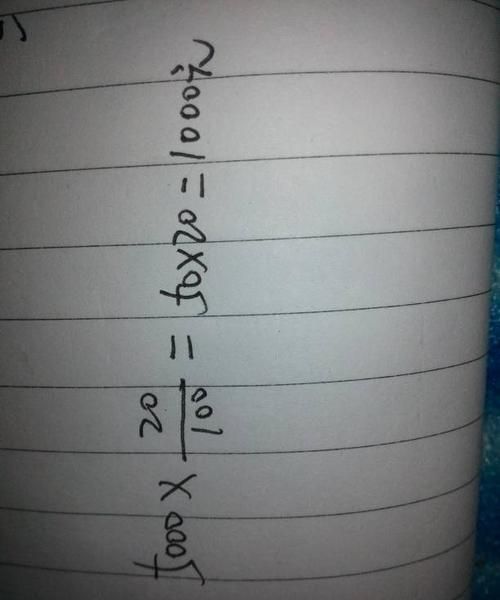 5000 × 20/100 = 50×20 = 1000